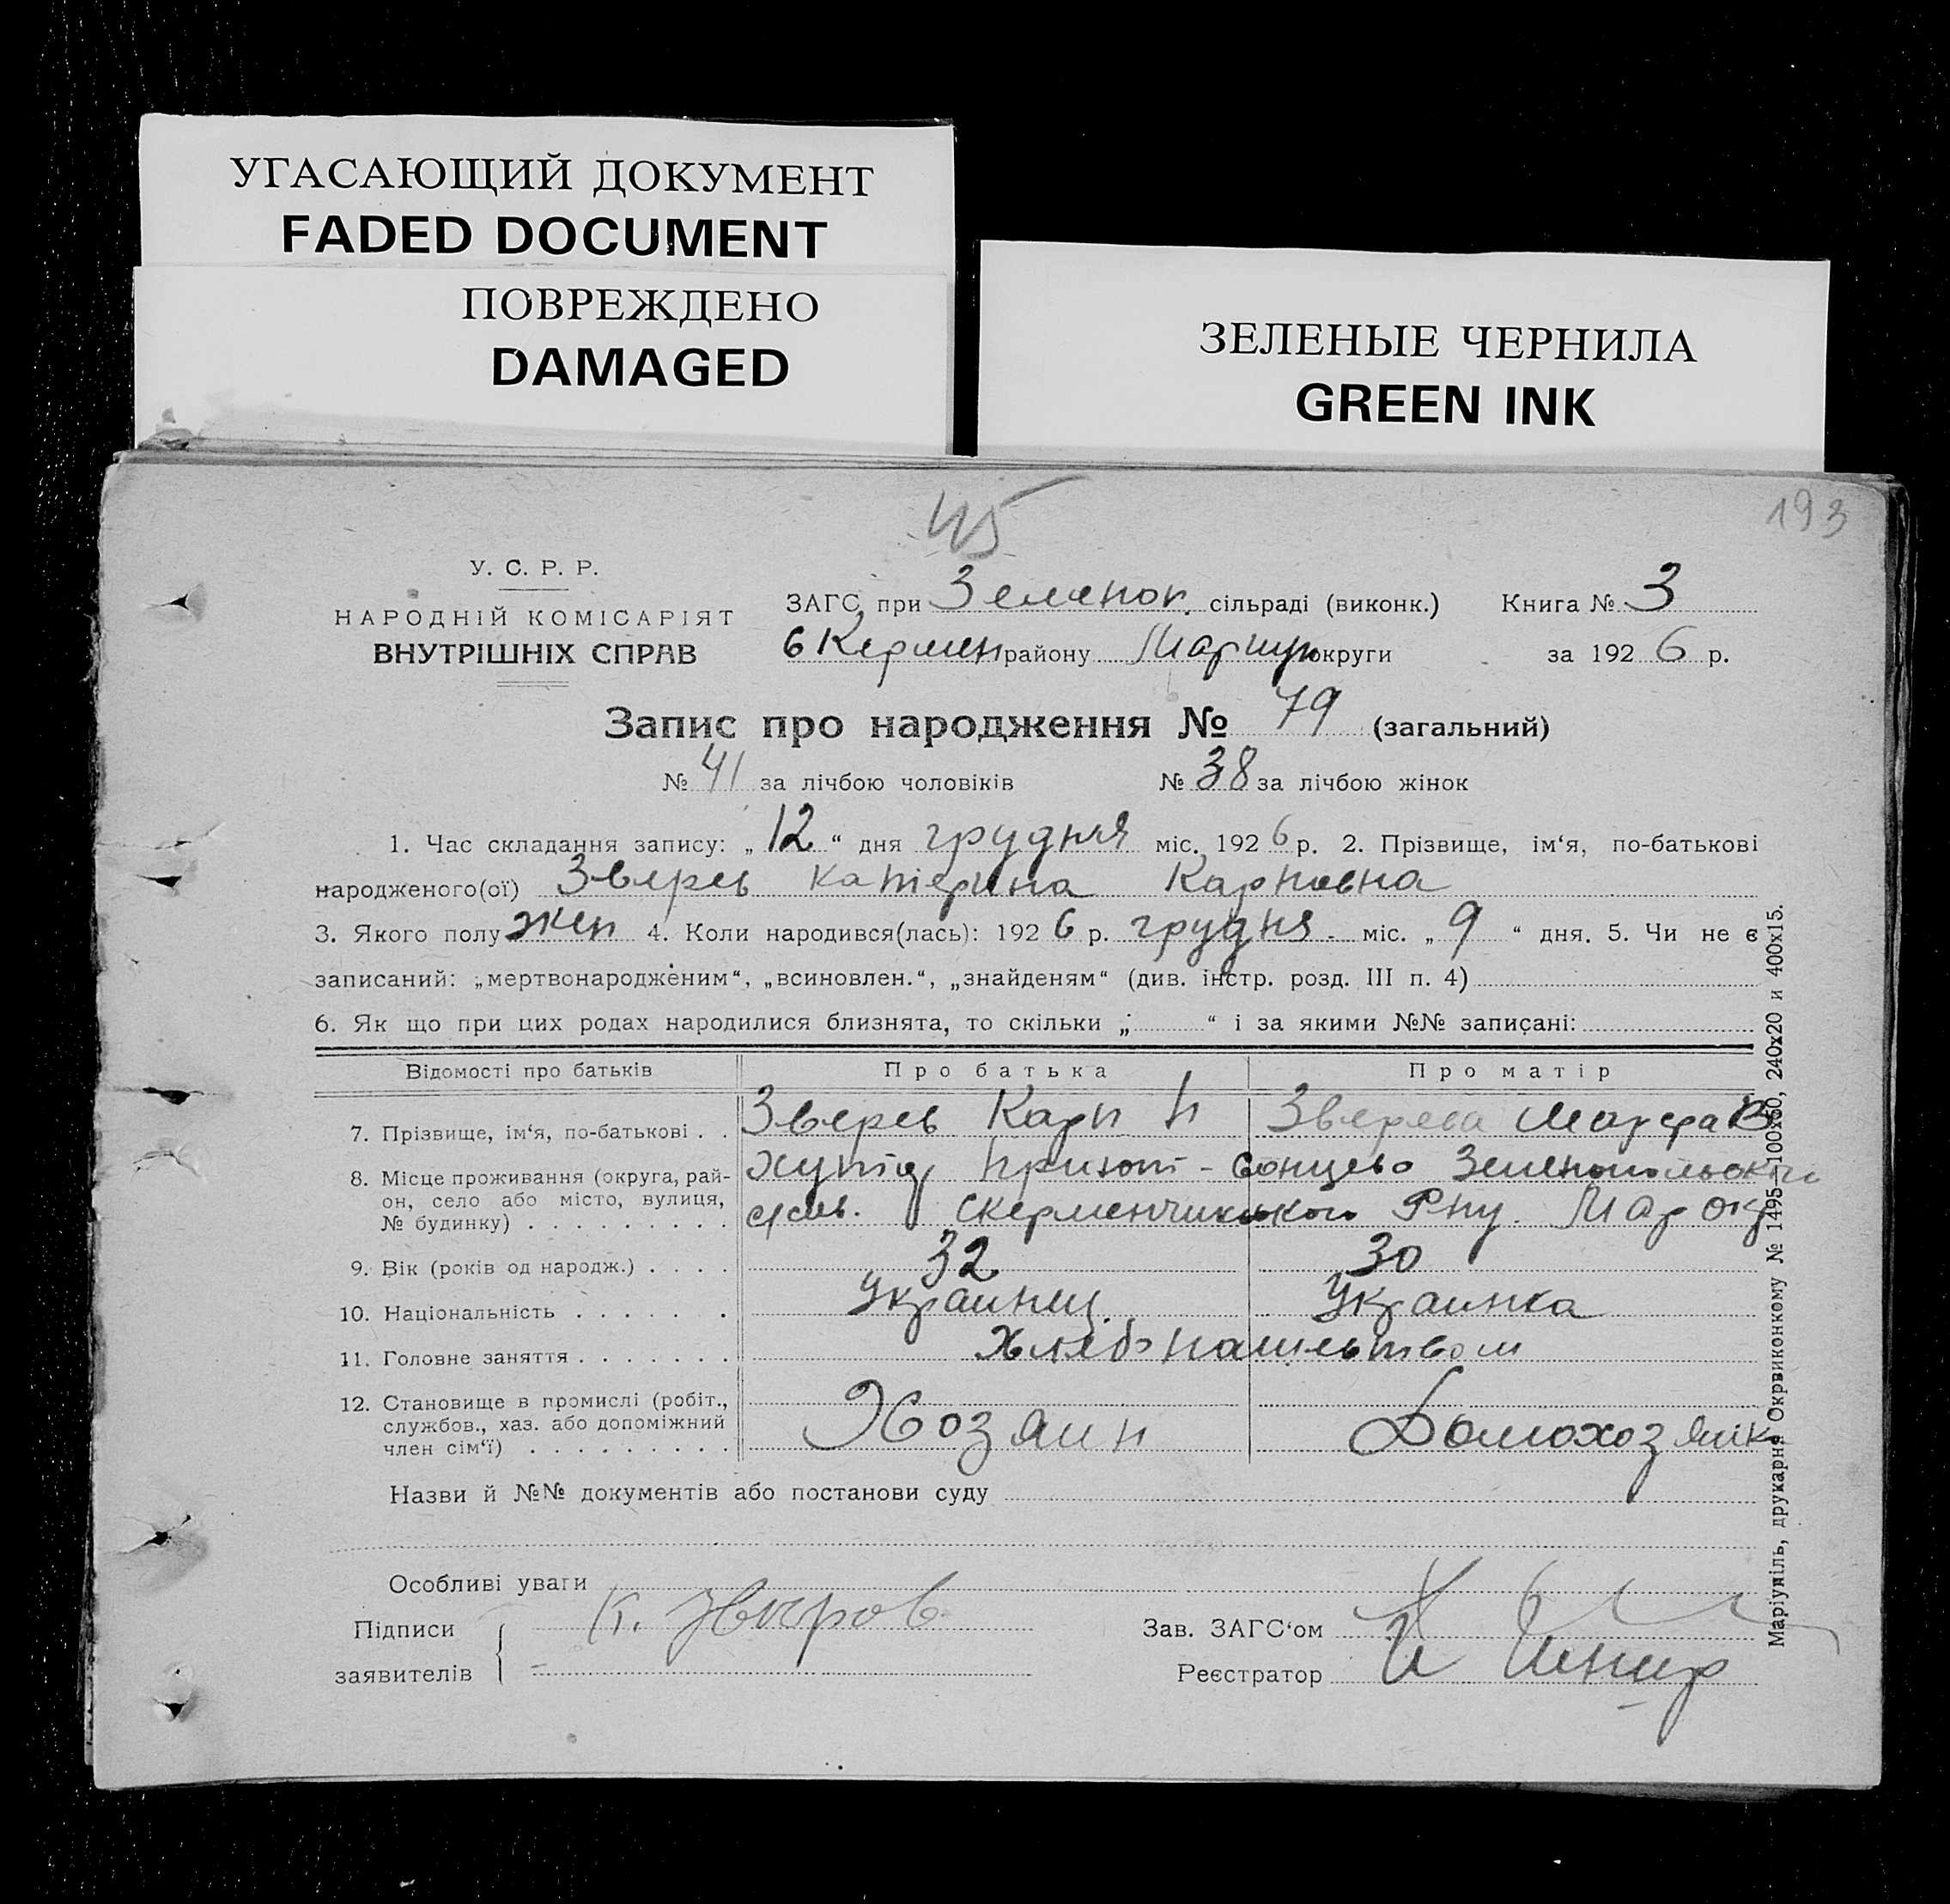 УГАСАЮЩИЙ ДОКУМЕНТ
FADED DOCUMENT
ПОВРЕЖДЕНО
DAMAGED
ЗЕЛЕНЫЕ ЧЕРНИЛА
GREEN INK
193
У. С. Р. Р.
НАРОДНІЙ КОМІСАРІЯТ
ВНУТРІШНІХ СПРАВ
ЗАГС при Зеленоп. сільраді (виконк.) Книга № 3
Кермен району Мариуп округи за 1926 р.
Запис про народження № 79 (загальний)
№ 41 за лічбою чоловіків № 38 за лічбою жінок
1. Час складання запису: „12“ дня грудня міс. 1926 р. 2. Прізвище, ім‘я, по-батькові
народженого(ої) Зверев Катерина Карповна
3. Якого полу жен 4. Коли народився(лась): 1926 р. грудня - міс. „9“ дня. 5. Чи не є
записаний: „мертвонародженим“, „всиновлен.“, „знайденям“ (див. інстр. розд. III п. 4)
6. Як що при цих родах народилися близнята, то скільки „ “ і за якими №№ записані:
Відомості про батьків Про батька Про матір
7. Прізвище, ім‘я, по-батькові . . Зверев Карп П Зверева Марфа В
8. Місце проживання (округа, рай- хутір Зеленопольской
он, село або місто, вулиця,
№ будинку) . . . . . . . . . Мар окр
9. Вік (років од народж.) . . . . 32 30
10. Національність . . . . . . . Украинец Украинка
11. Головне заняття . . . . . . . Хлебопашеством
12. Становище в промислі (робіт., Хозяин Домохозяйк
службов., хаз. або допоміжний
член сім‘ї) . . . . . . . . .
Назви й №№ документів або постанови суду
Особливі уваги
Підписи К. Зверов Зав. ЗАГС‘ом
заявителів Реєстратор
Маріупіль, друкарня Окрвиконкому № 1495—100х50, 240х20 и 400х15.